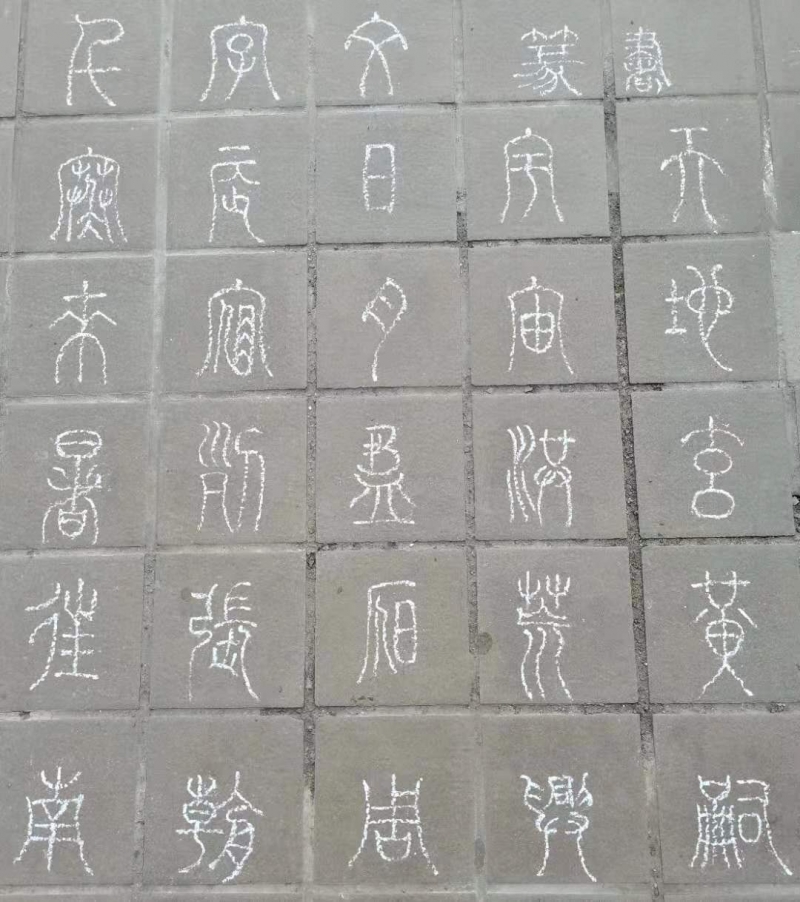 千字文 篆書
天地玄黃
宇宙洪荒
日月盈昃
辰宿列張
寒來暑往
南朝周興嗣